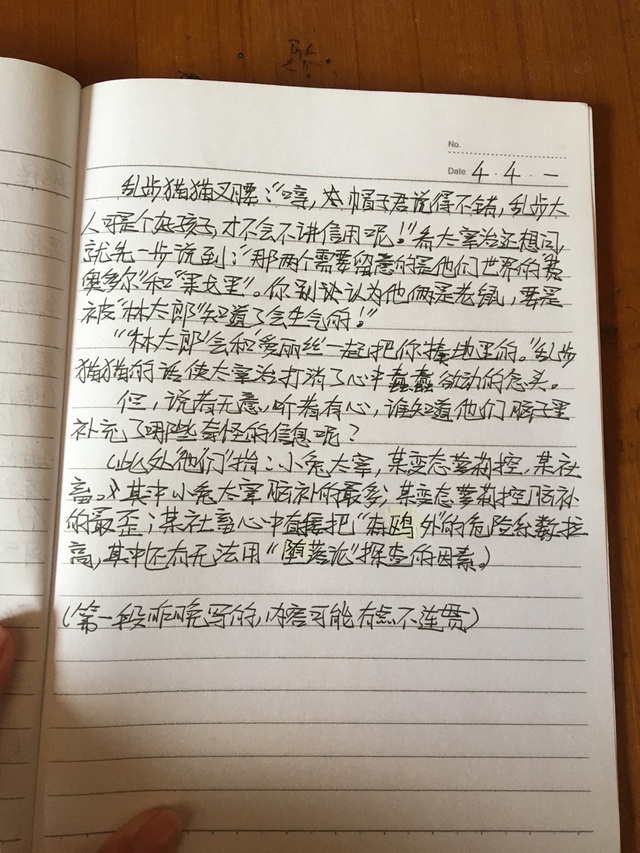 No.
Date 4.4.一
乱步猫猫叉腰:“哼,本帽子君说得不错,乱步大
人可是个好孩子,才不会不讲信用呢!”看太宰治还想问,
就先一步说到:“那两个需要留意的是他们世界的“费
奥多尔”和“果戈里”。你别认为他俩是老鼠,要是
被“林太郎”知道了会生气的!”
“‘林太郎’会和‘爱丽丝’一起把你揍地里的。”乱步
猫猫的话使太宰治打消了心中蠢蠢欲动的念头。
但,说者无意,听者有心,谁知道他们脑子里
补充了哪些奇怪的信息呢?
(此处“他们”指:小兔太宰,某变态萝莉控,某社
畜。)其中小兔太宰脑补的最多;某变态萝莉控脑补
的最歪;某社畜心中直接把“森鸥外”的危险系数拉
高,其中还有无法用“堕落论”探查的因素。)
(第一段昨晚写的,内容可能有点不连贯)